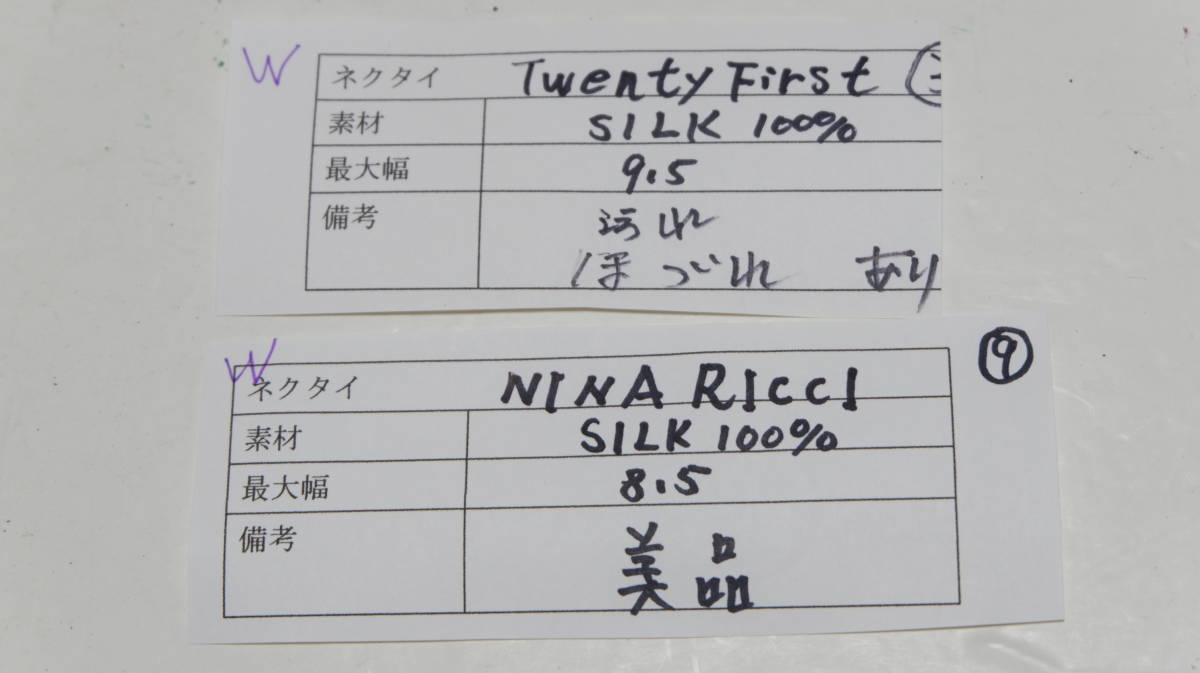 W
ネクタイ Twenty First
素材 SILK 100%
最大幅 9.5
備考 汚れ
ほづれ あり
W
ネクタイ NINA RICCI ⑨
素材 SILK 100%
最大幅 8.5
備考 美品